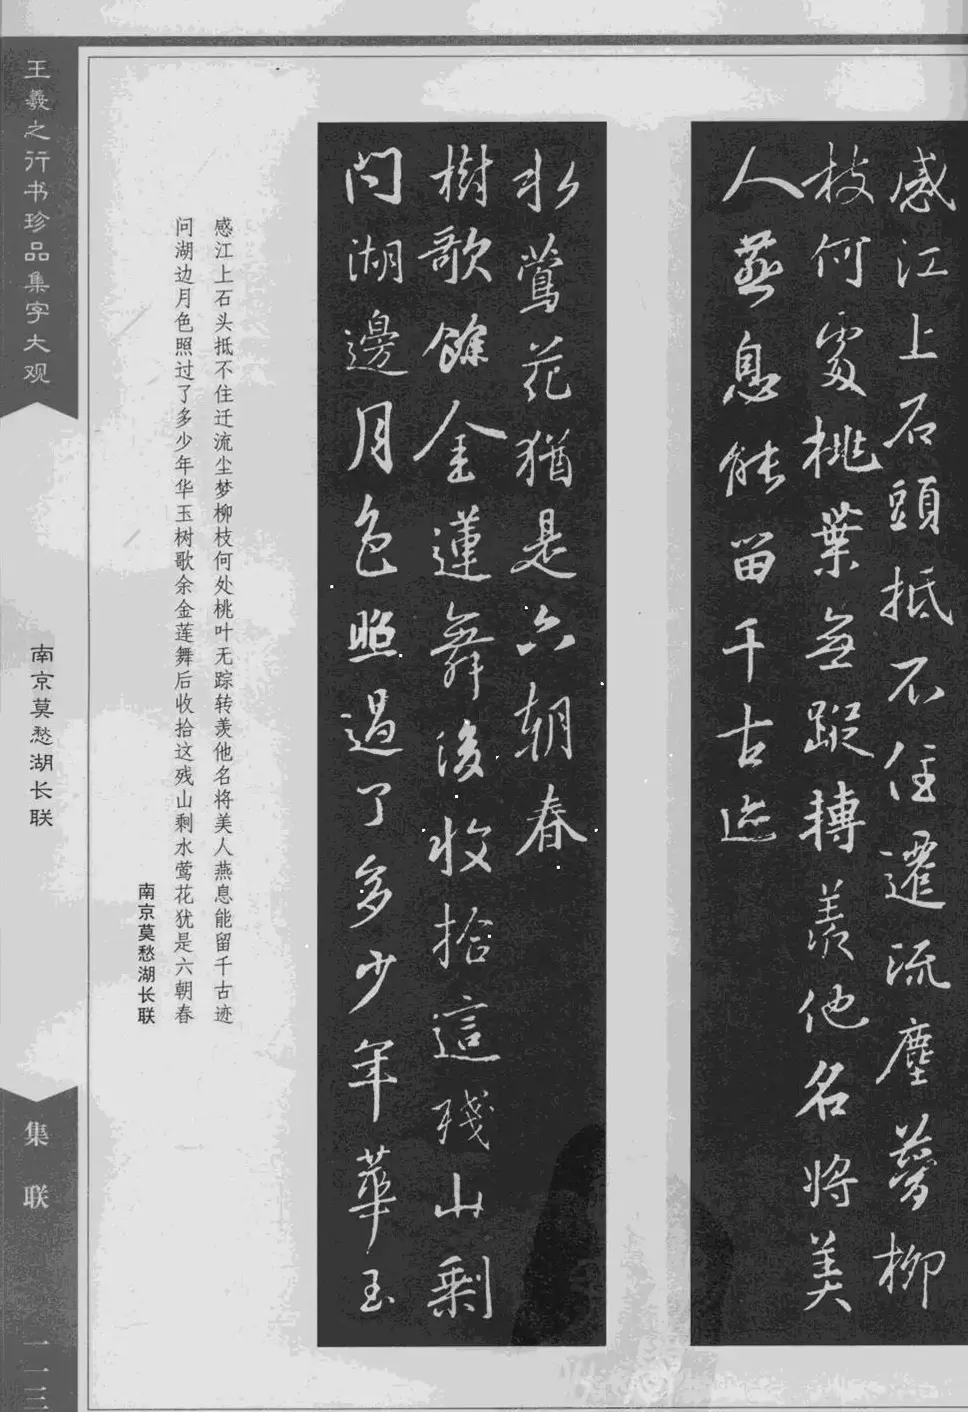 感江上石頭抵不住遷流塵夢柳
枝何處桃葉無蹤轉羨他名將美
人燕息能留千古迹
問湖邊月色照過了多少年華玉
樹歌餘金蓮舞後收拾這殘山剩
水鶯花猶是六朝春
感江上石头抵不住迁流尘梦柳枝何处桃叶无踪转羡他名将美人燕息能留千古迹
问湖边月色照过了多少年华玉树歌余金莲舞后收拾这残山剩水莺花犹是六朝春
南京莫愁湖长联
王羲之行书珍品集字大观
南京莫愁湖长联
集联
一一三